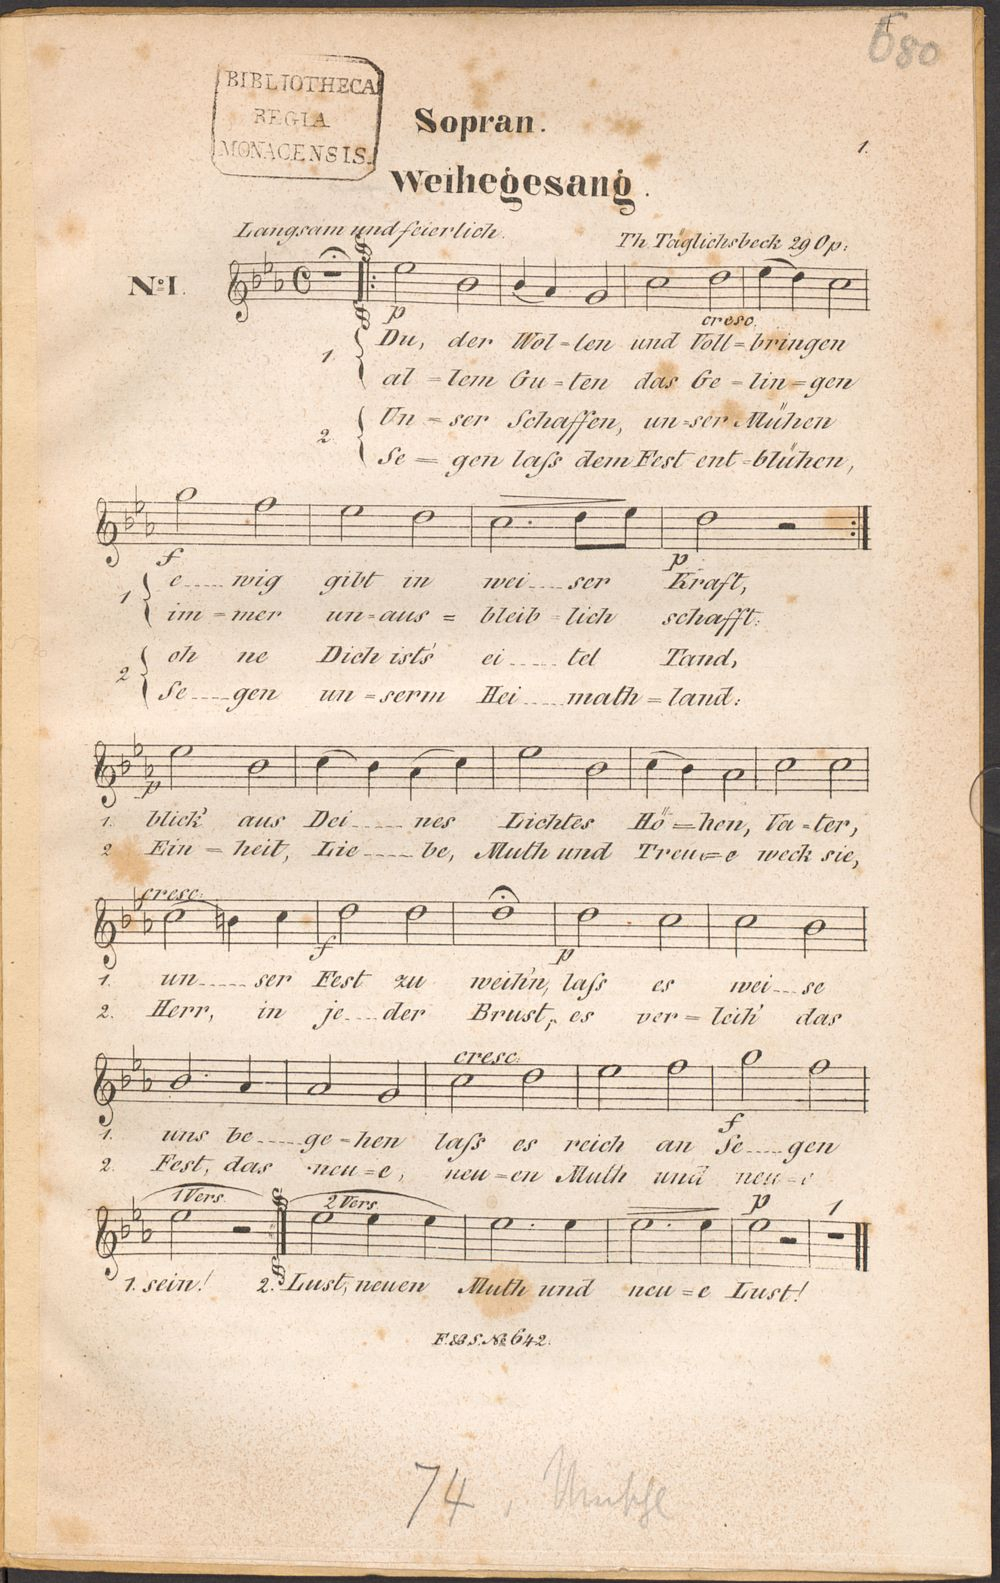 680
BIBLIOTHECA
REGIA
MONACENSIS.
Sopran.
1.
Weihegesang.
Langsam und feierlich.
Th. Täglichsbeck 29 Op:
No I.
p
cresc.
1. Du, der Wol-len und Voll-bringen
al-lem Gu-ten das Ge-lin-gen
2. Un-ser Schaffen, un-ser Mühen
Se-gen laſs dem Fest ent-blühen,
f p
1 e.....wig gibt in wei....ser Kraft,
im-mer un-aus=bleib-lich schafft:
2 oh ne Dich ist's ei.....tel Tand,
Se....gen un-serm Hei....math=land:
p
1. blick' aus Dei.....nes Lichtes Hö=hen, Va-ter,
2 Ein-heit, Lie.....be, Muth und Treu=e weck sie,
cresc.
f p
1. un.....ser Fest zu weih'n, laſs es wei...se
2. Herr, in je...der Brust, es ver=leih' das
cresc.
f
1. uns be.....ge-hen laſs es reich an Se....gen
2. Fest, das neu=e, neu=en Muth und neu=e
1 Vers. 2 Vers. p 1
1. sein! 2. Lust, neuen Muth und neu=e Lust!
F.&S. No 642.
74,